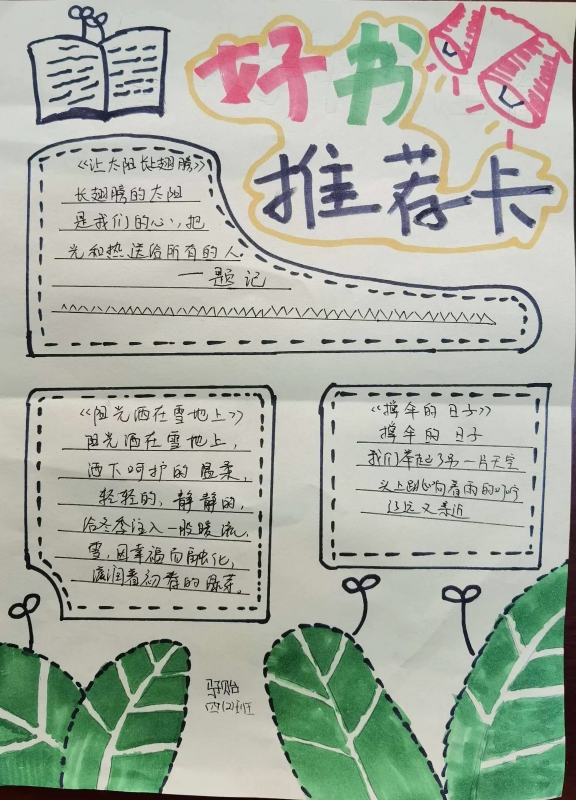 好书
推荐卡
《让太阳长翅膀》
长翅膀的太阳
是我们的心，把
光和热送给所有的人
—题记
《阳光洒在雪地上》
阳光洒在雪地上，
洒下呵护的温柔，
轻轻的，静静的，
给冬季注入一股暖流，
雪，因幸福而融化，
滋润着初春的绿芽。
《撑伞的日子》
撑伞的日子
我们举起了另一片天空
头上跳响着雨的叮咛
遥远又亲近
四(2)班